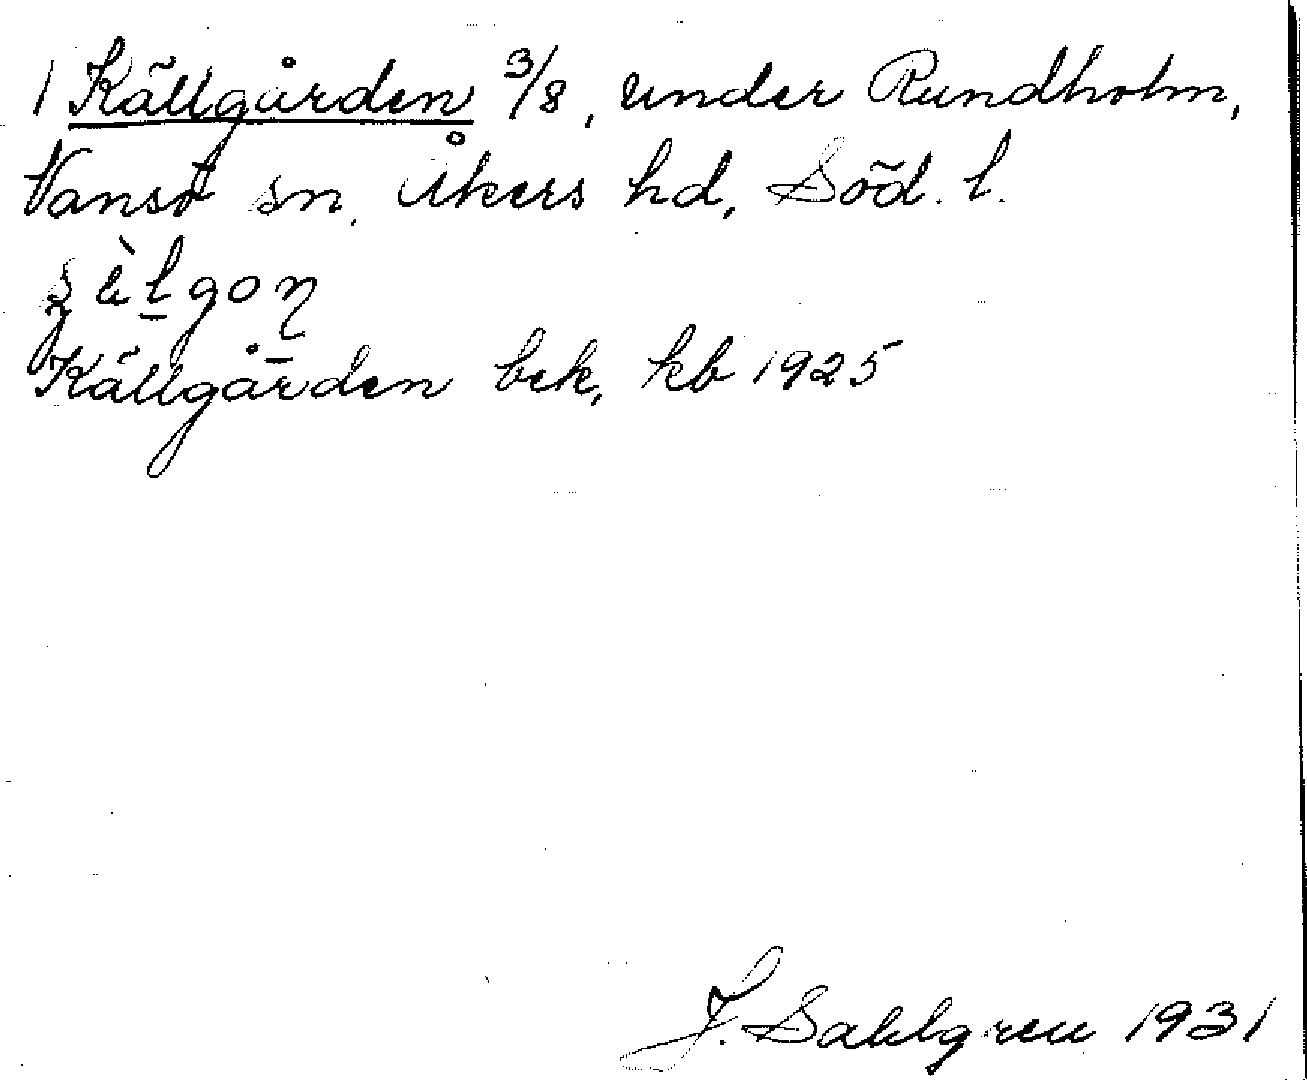 1 Källgården 3/8, under Rundholm,
Vansö sn, Åkers hd, Söd. l.
Källgården bek, kb 1925
J. Sahlgren 1931